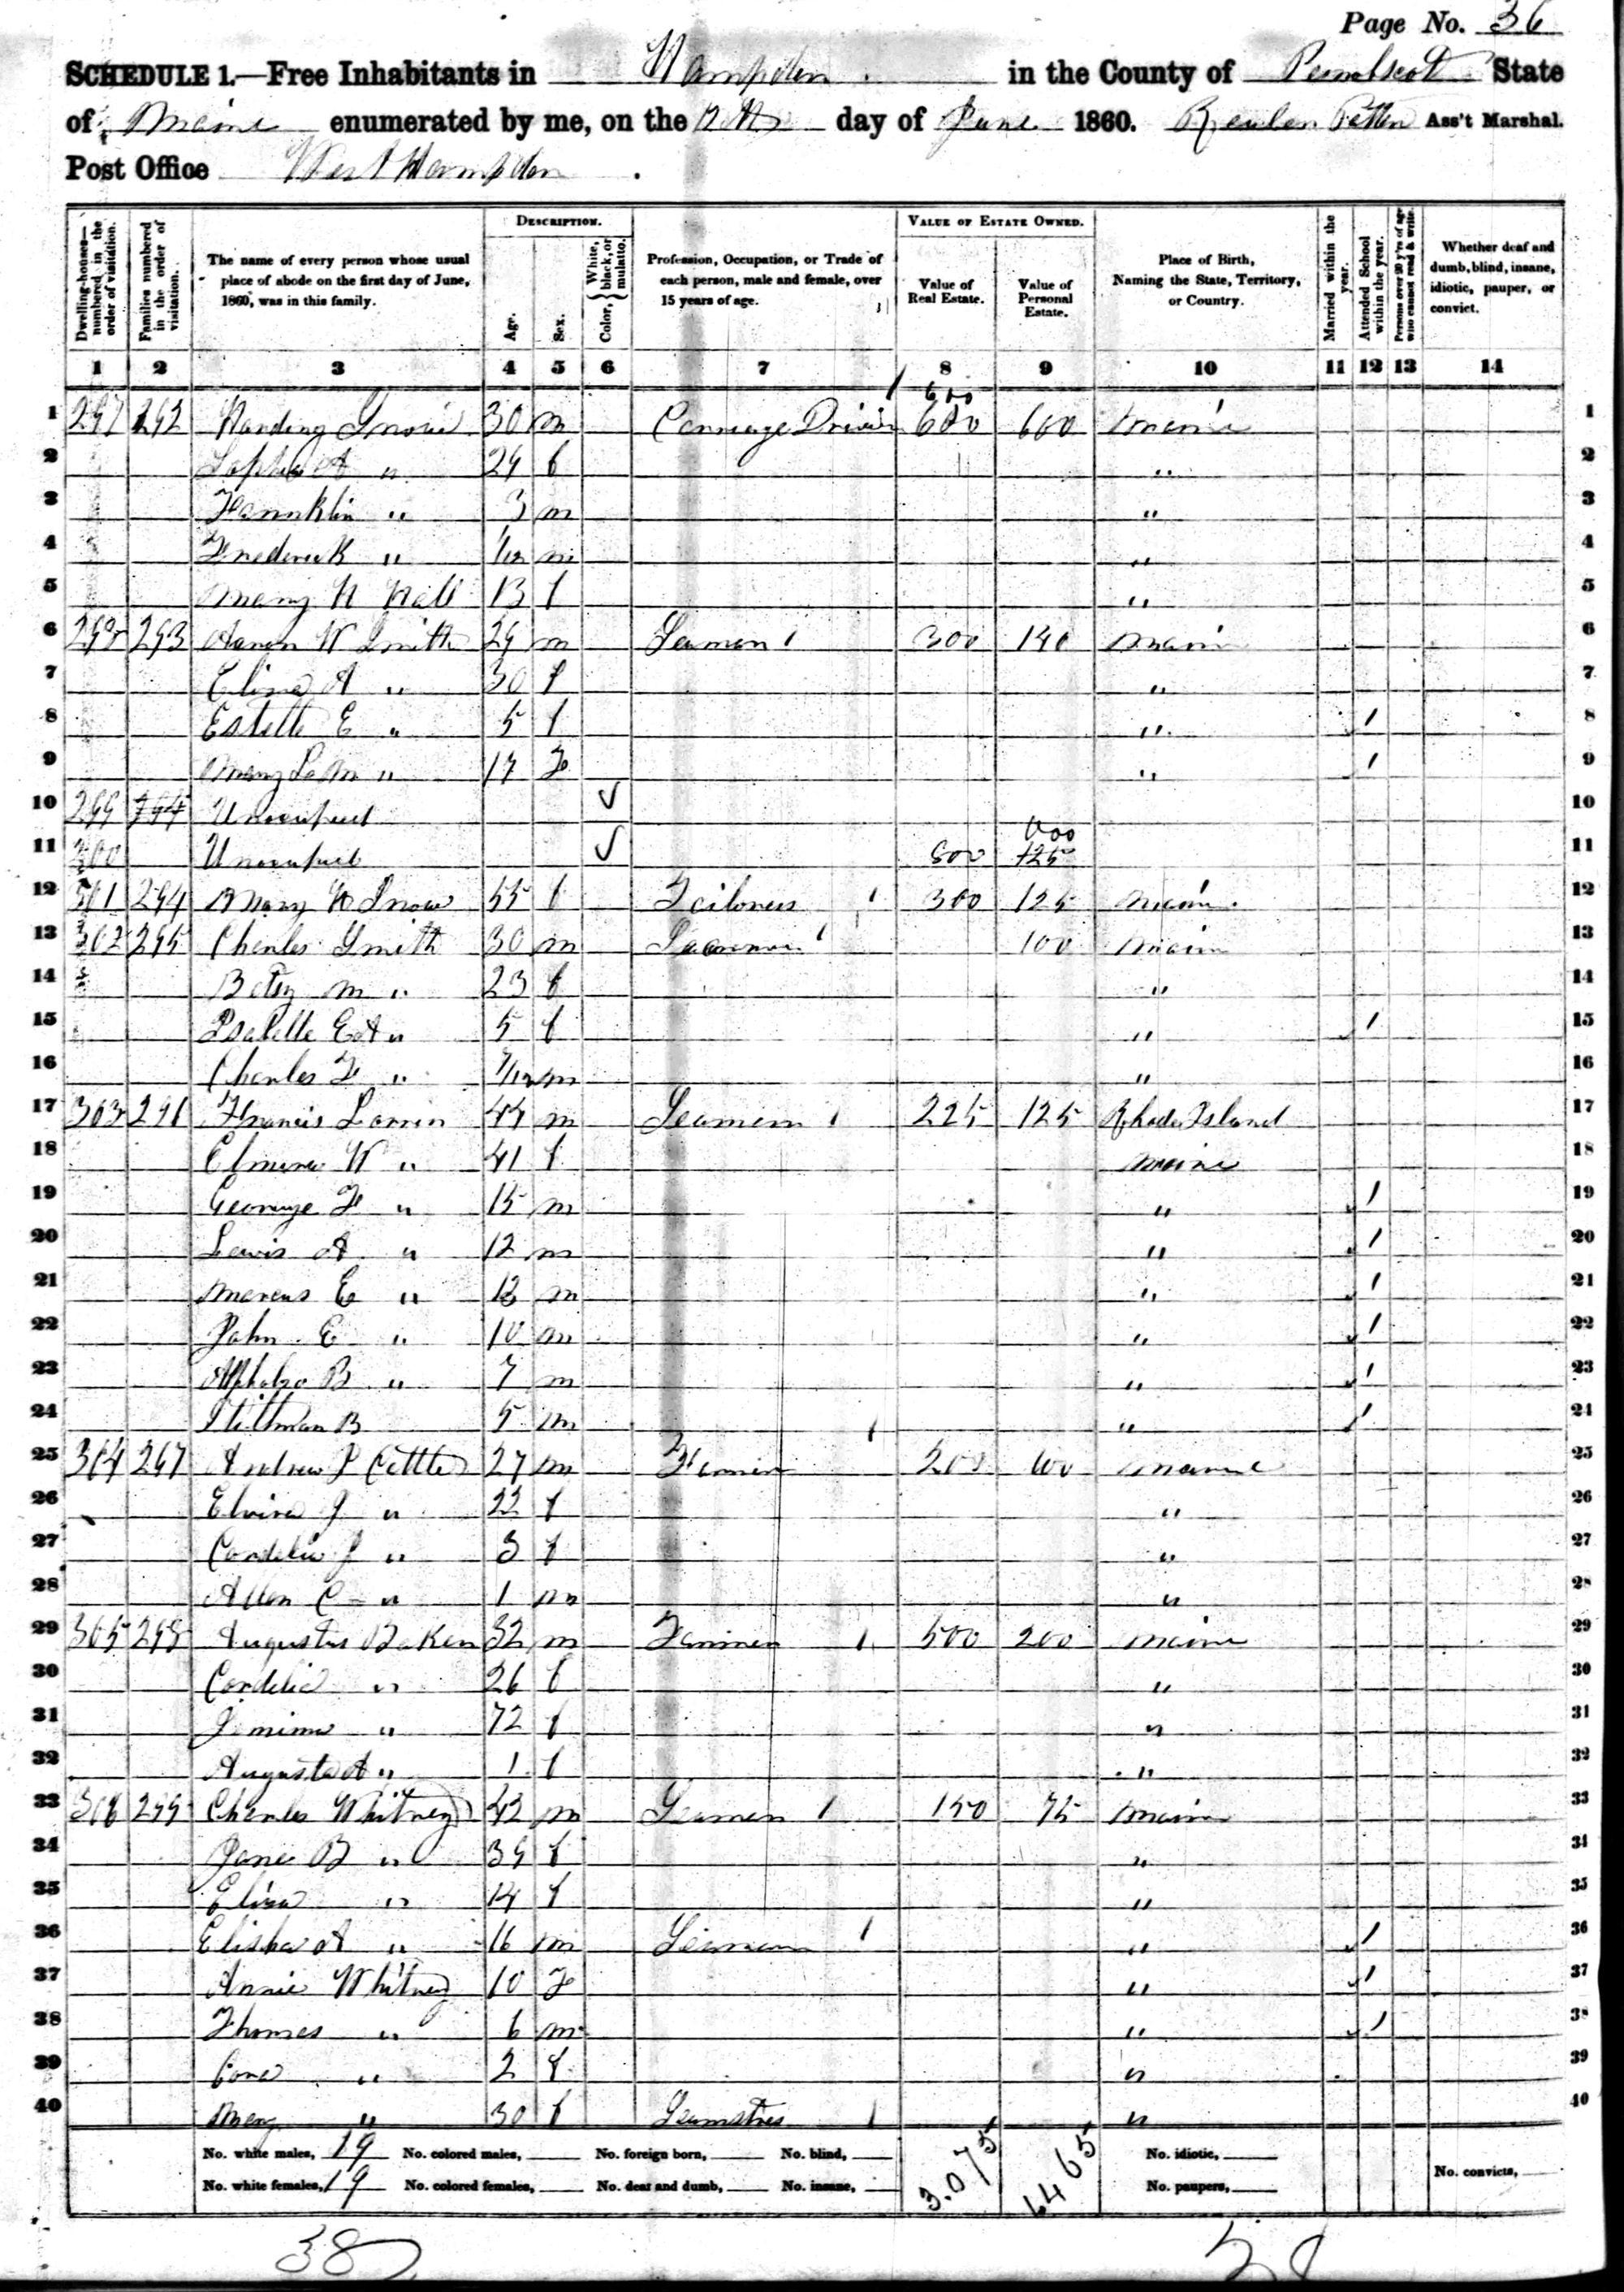 Page No. 36
SCHEDULE 1.—Free Inhabitants in Hampden in the County of Penobscot State
of Maine enumerated by me, on the 12th day of June 1860. Reuben Patten Ass't Marshal.
Post Office West Hampden.
Dwelling-houses—numbered in the order of visitation.
Families numbered in the order of visitation.
The name of every person whose usual place of abode on the first day of June, 1860, was in this family.
DESCRIPTION.
Age.
Sex.
Color, { White, black, or mulatto.
Profession, Occupation, or Trade of each person, male and female, over 15 years of age.
VALUE OF ESTATE OWNED.
Value of Real Estate.
Value of Personal Estate.
Place of Birth, Naming the State, Territory, or Country.
Married within the year.
Attended School within the year.
Persons over 20 y'rs of age who cannot read & write.
Whether deaf and dumb, blind, insane, idiotic, pauper, or convict.
1 2 3 4 5 6 7 8 9 10 11 12 13 14
600
1 297 292 Harding Snow 30 m Carriage Driver 600 600 Maine 1
2 Sophia A " 24 f " 2
3 Franklin " 3 m " 3
4 Frederick " m " 4
5 Mary H Hall 13 f " 5
6 298 293 Aaron W Smith 29 m Seaman 300 140 Maine 6
7 A " 30 f " 7
8 Estelle E " 5 f " / 8
9 Mary " 17 F " / 9
10 299 294 Unoccupied √ 10
11 300 Unoccupied √ 11
12 301 294 Mary Snow 55 f Tailoress 300 125 Maine 12
13 302 295 Charles Smith 30 m Seaman 100 Maine 13
14 Betsy M " 23 f " 14
15 Isabelle E A " 5 f " / 15
16 Charles F " 7/12 m " 16
17 303 296 Francis 44 m Seaman 225 125 Rhode Island 17
18 Elmira W " 41 f Maine 18
19 George F " 15 m " / 19
20 Lewis A " 12 m " / 20
21 Marcus E " m " / 21
22 John E " 10 m " / 22
23 B " 7 m " / 23
24 Stillman B 5 m " / 24
25 304 297 Andrew J 27 m Farmer 200 100 Maine 25
26 Elvira J " 22 f " 26
27 Cordelia J " 3 f " 27
28 Allen C " 1 m " 28
29 305 298 Augustus Baker 32 m Farmer 500 200 Maine 29
30 Cordelia " 26 f " 30
31 Jemima " 72 f " 31
32 Augusta A " 1 f " 32
33 306 299 Charles Whitney 42 m Seaman 150 75 Maine 33
34 Jane B " 39 f " 34
35 Eliza " 14 f " 35
36 Elisha A " 16 m Seaman " / 36
37 Annie Whitney 10 F " / 37
38 Thomas " 6 m " / 38
39 Cora " 2 f " 39
40 Mary " 30 f Seamstres " 40
No. white males, 19 No. colored males, No. foreign born, No. blind, 3.075 1465 No. idiotic,
No. white females, 19 No. colored females, No. deaf and dumb, No. insane, No. paupers, No. convicts,
38